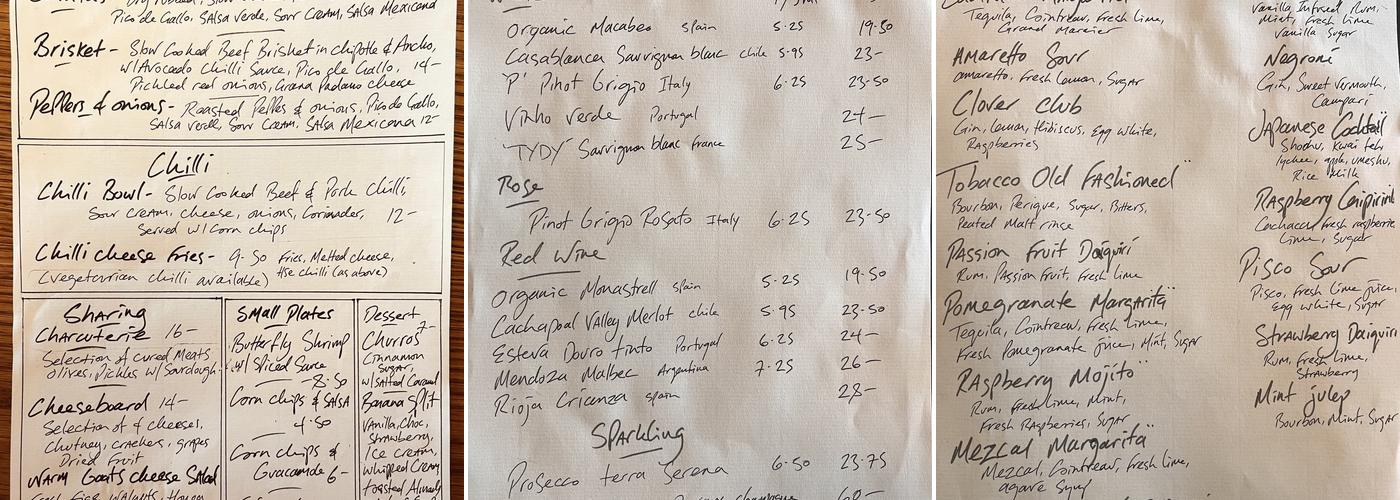 Pico de Gallo, Salsa verde, Sour Cream, Salsa Mexicana
Brisket - Slow Cooked Beef Brisket in chipotle & Ancho,
w/Avocado Chilli Sauce, Pico de Gallo, 14-
Pickled red onions, Grana Padano cheese
Peppers & onions - Roasted Peppers & onions, Pico de Gallo,
Salsa verde, Sour Cream, Salsa Mexicana 12-
Chilli
Chilli Bowl - Slow Cooked Beef & Pork Chilli,
Sour Cream, cheese, onions, Coriander, 12-
Served w/ Corn chips
Chilli cheese fries - 9.50 fries, Melted cheese,
(vegetarian chilli available) Hse chilli (as above)
Sharing
Charcuterie 16-
Selection of cured Meats,
Olives, Pickles w/ Sourdough
Cheeseboard 14-
Selection of 4 cheeses,
Chutney, crackers, grapes
Dried Fruit
Warm Goats cheese Salad
Small Plates
Butterfly Shrimp
w/ Spiced Sauce
-8.50
Corn chips & Salsa
- 4.50
Corn chips &
Guacamole 6-
Dessert
7-
Churros
Cinnamon
Sugar,
w/ Salted Caramel
Banana Split
Vanilla, Choc,
Strawberry,
Ice Cream,
whipped Cream
toasted Almonds
Organic Macabeo Spain 5.25 19.50
Casablanca Sauvignon blanc chile 5.95 23-
'P' Pinot Grigio Italy 6.25 23.50
Vinho verde Portugal 24-
'TYDY' Sauvignon blanc France 25-
Rose
Pinot Grigio Rosato Italy 6.25 23.50
Red Wine
Organic Monastrell Spain 5.25 19.50
Cachapoal Valley Merlot chile 5.95 23.50
Esteva Douro tinto Portugal 6.25 24-
Mendoza Malbec Argentina 7.25 26-
Rioja Crianza Spain 28-
Sparkling
Prosecco terra Serena 6.50 23.75
Tequila, Cointreau, Fresh Lime,
Grand Marnier
Amaretto Sour
amaretto, Fresh Lemon, Sugar
Clover Club
Gin, Lemon, Hibiscus, Egg White,
Raspberries
Tobacco Old Fashioned"
Bourbon, Perique, Sugar, Bitters,
Peated Malt rinse
Passion Fruit Daiquiri
Rum, Passion fruit, Fresh lime
Pomegranate Margarita"
Tequila, Cointreau, Fresh Lime,
Fresh Pomegranate juice, Mint, Sugar
Raspberry Mojito"
Rum, Fresh lime, Mint,
Fresh Raspberries, Sugar
Mezcal Margarita"
Mezcal, Cointreau, Fresh Lime,
agave Syrup
Vanilla Infused Rum,
Mint, Fresh lime
Vanilla Sugar
Negroni
Gin, Sweet Vermouth,
Campari
Japanese Cocktail
Shochu,
lychee, apple, umeshu,
Rice Milk
Raspberry Caipirinh
Cachaca, Fresh raspberries,
Lime, Sugar
Pisco Sour
Pisco, Fresh lime juice,
Egg white, Sugar
Strawberry Daiquiri
Rum, Fresh Lime,
Strawberry
Mint julep
Bourbon, Mint, Sugar